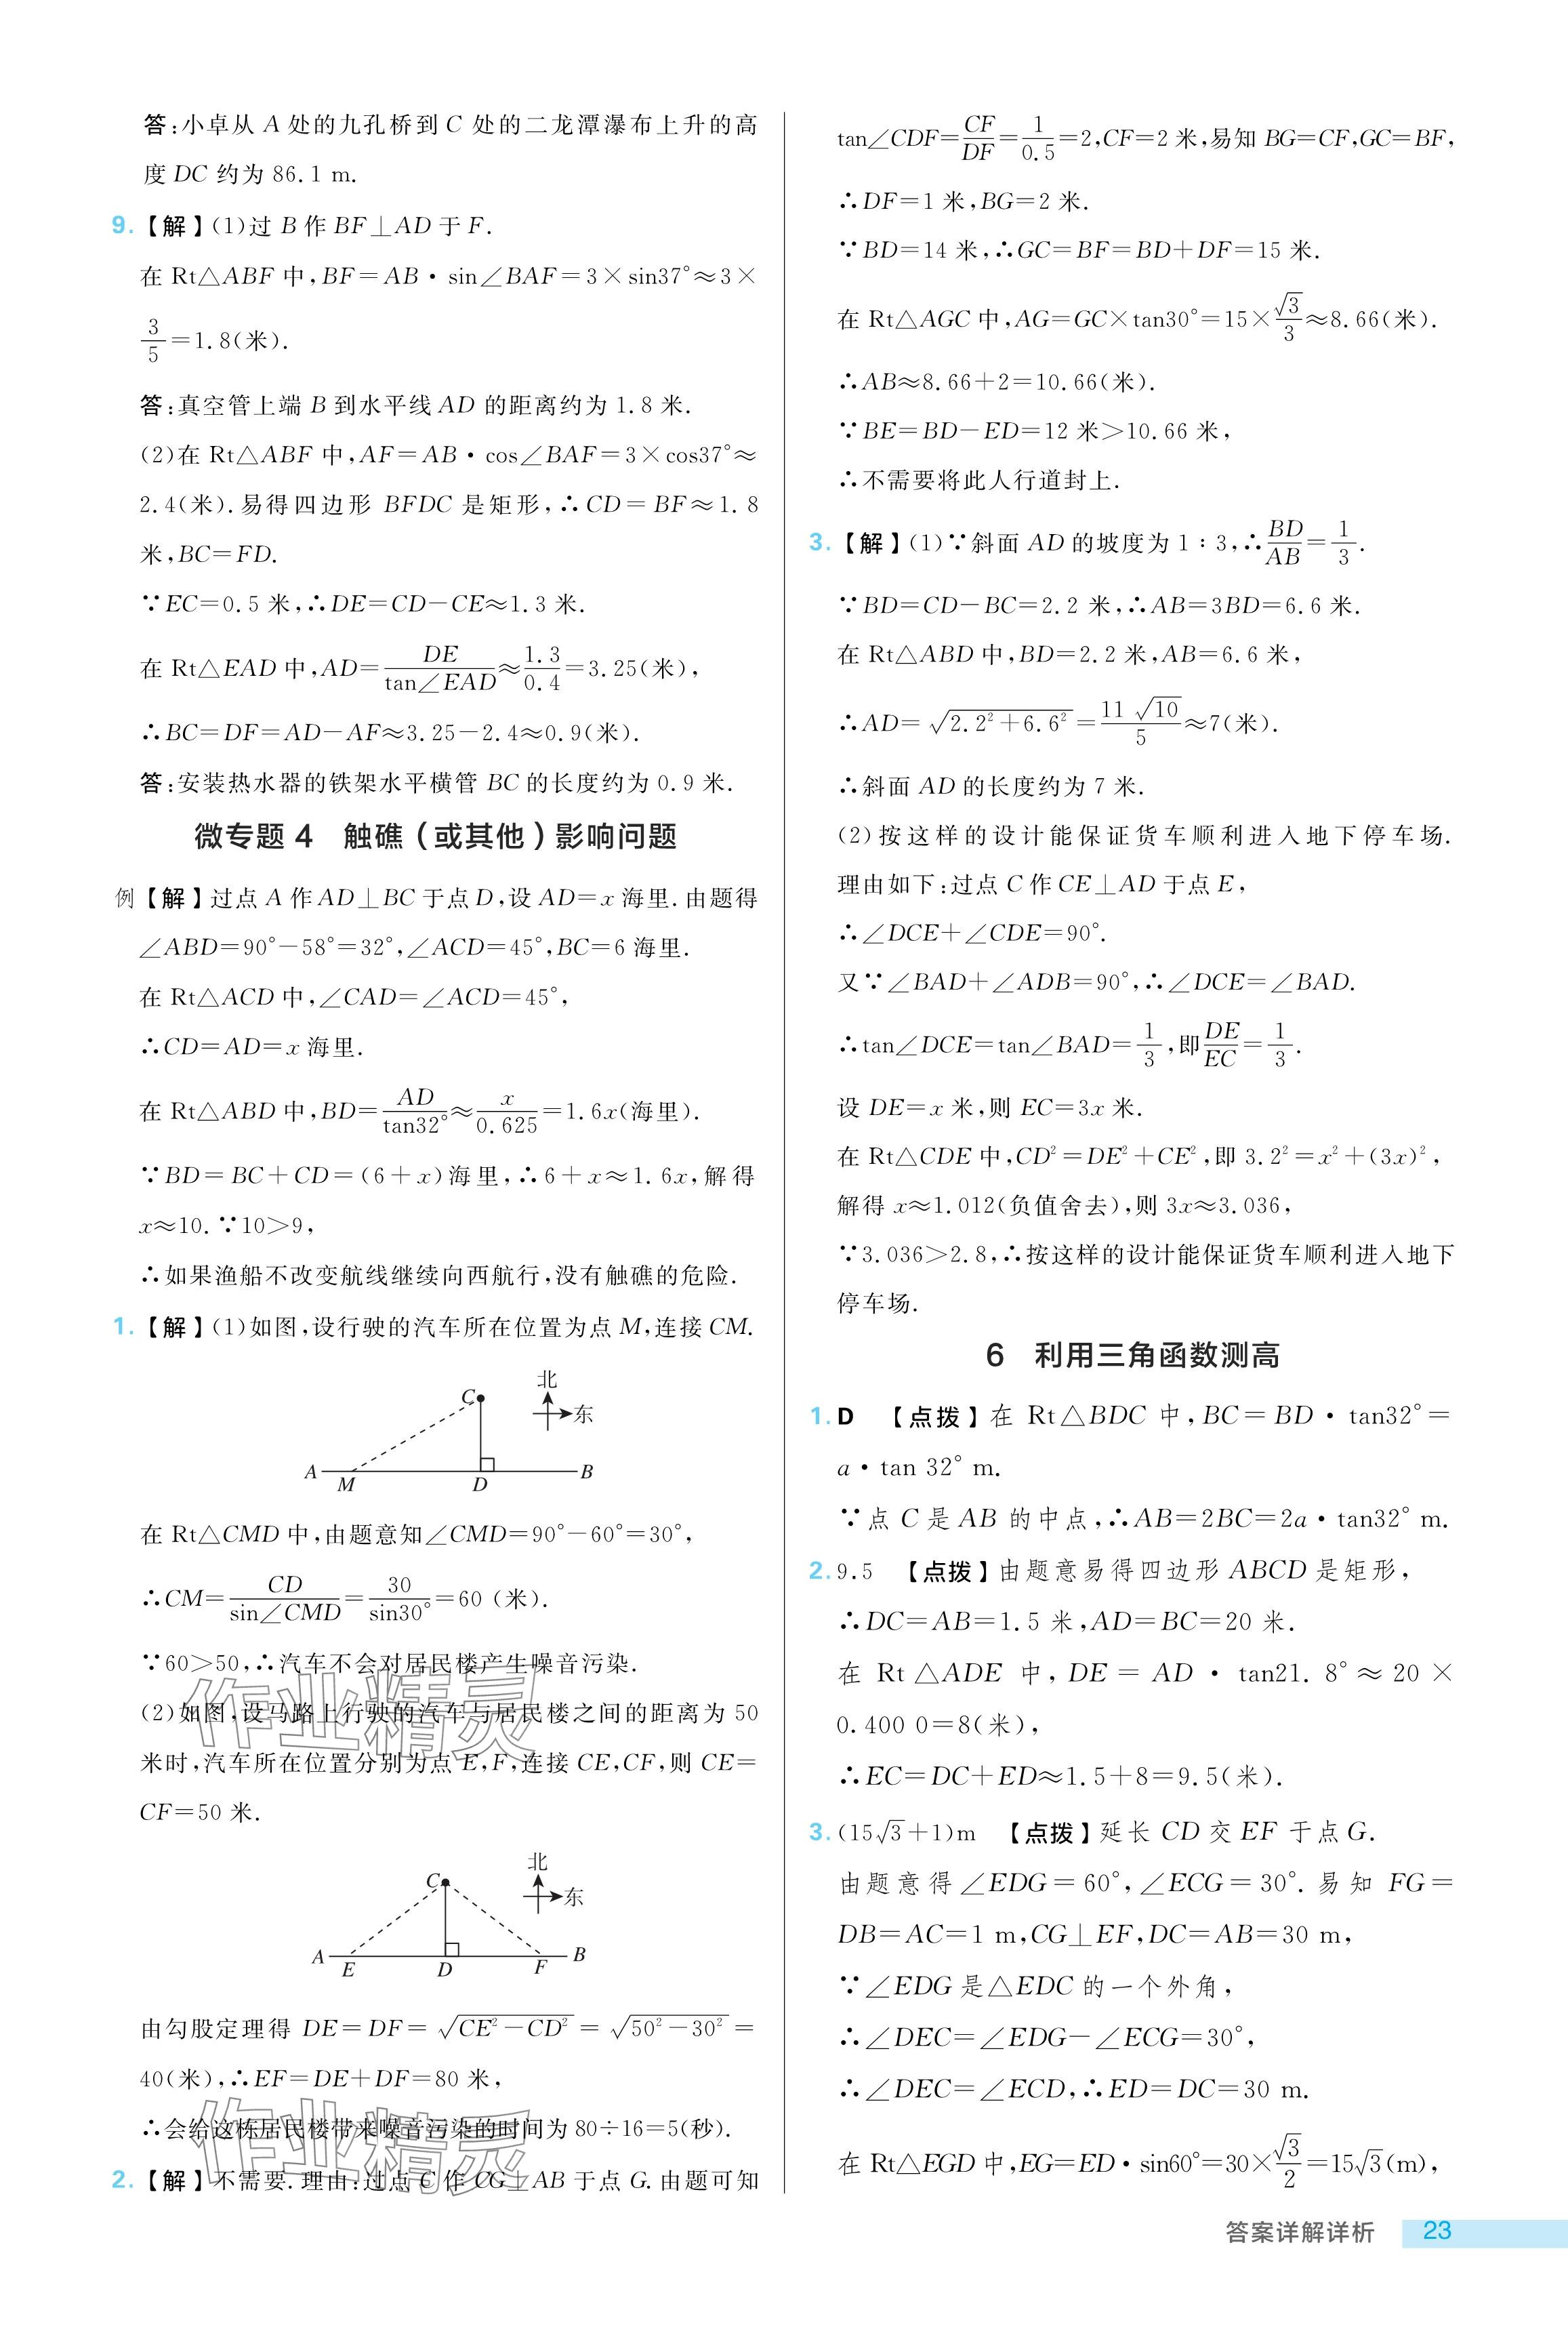 答:小卓从 A 处的九孔桥到 C 处的二龙潭瀑布上升的高
度 DC 约为 86.1 m.
9.【解】(1)过 B 作 BF⊥AD 于 F.
在 Rt△ABF 中,BF=AB·sin∠BAF=3×sin37°≈3×
3/5=1.8(米).
答:真空管上端 B 到水平线 AD 的距离约为 1.8 米.
(2)在 Rt△ABF 中,AF=AB·cos∠BAF=3×cos37°≈
2.4(米).易得四边形 BFDC 是矩形,∴CD=BF≈1.8
米,BC=FD.
∵EC=0.5 米,∴DE=CD-CE≈1.3 米.
在 Rt△EAD 中,AD=DE/tan∠EAD≈1.3/0.4=3.25(米),
∴BC=DF=AD-AF≈3.25-2.4≈0.9(米).
答:安装热水器的铁架水平横管 BC 的长度约为 0.9 米.
微专题 4 触礁(或其他)影响问题
例【解】过点 A 作 AD⊥BC 于点 D,设 AD=x 海里.由题得
∠ABD=90°-58°=32°,∠ACD=45°,BC=6 海里.
在 Rt△ACD 中,∠CAD=∠ACD=45°,
∴CD=AD=x 海里.
在 Rt△ABD 中,BD=AD/tan32°≈x/0.625=1.6x(海里).
∵BD=BC+CD=(6+x)海里,∴6+x≈1.6x,解得
x≈10.∵10>9,
∴如果渔船不改变航线继续向西航行,没有触礁的危险.
1.【解】(1)如图,设行驶的汽车所在位置为点 M,连接 CM.
北
C
东
A
B
M
D
在 Rt△CMD 中,由题意知∠CMD=90°-60°=30°,
∴CM=CD/sin∠CMD=30/sin30°=60 (米).
∵60>50,∴汽车不会对居民楼产生噪音污染.
(2)如图,设马路上行驶的汽车与居民楼之间的距离为 50
米时,汽车所在位置分别为点 E,F,连接 CE,CF,则 CE=
CF=50 米.
北
C
东
A
B
E
D
F
由勾股定理得 DE=DF=√(CE²-CD²)=√(50²-30²)=
40(米),∴EF=DE+DF=80 米,
∴会给这栋居民楼带来噪音污染的时间为 80÷16=5(秒).
2.【解】不需要.理由:过点 C 作 CG⊥AB 于点 G.由题可知
tan∠CDF=CF/DF=1/0.5=2,CF=2 米,易知 BG=CF,GC=BF,
∴DF=1 米,BG=2 米.
∵BD=14 米,∴GC=BF=BD+DF=15 米.
在 Rt△AGC 中,AG=GC×tan30°=15×√3/3≈8.66(米).
∴AB≈8.66+2=10.66(米).
∵BE=BD-ED=12 米>10.66 米,
∴不需要将此人行道封上.
3.【解】(1)∵斜面 AD 的坡度为 1:3,∴BD/AB=1/3.
∵BD=CD-BC=2.2 米,∴AB=3BD=6.6 米.
在 Rt△ABD 中,BD=2.2 米,AB=6.6 米,
∴AD=√(2.2²+6.6²)=11√10/5≈7(米).
∴斜面 AD 的长度约为 7 米.
(2)按这样的设计能保证货车顺利进入地下停车场.
理由如下:过点 C 作 CE⊥AD 于点 E,
∴∠DCE+∠CDE=90°.
又∵∠BAD+∠ADB=90°,∴∠DCE=∠BAD.
∴tan∠DCE=tan∠BAD=1/3,即DE/EC=1/3.
设 DE=x 米,则 EC=3x 米.
在 Rt△CDE 中,CD²=DE²+CE²,即 3.2²=x²+(3x)²,
解得 x≈1.012(负值舍去),则 3x≈3.036,
∵3.036>2.8,∴按这样的设计能保证货车顺利进入地下
停车场.
6 利用三角函数测高
1.D 【点拨】在 Rt△BDC 中,BC=BD·tan32°=
a·tan 32° m.
∵点 C 是 AB 的中点,∴AB=2BC=2a·tan32° m.
2.9.5 【点拨】由题意易得四边形 ABCD 是矩形,
∴DC=AB=1.5 米,AD=BC=20 米.
在 Rt△ADE 中,DE=AD·tan21.8°≈20×
0.400 0=8(米),
∴EC=DC+ED≈1.5+8=9.5(米).
3.(15√3+1)m 【点拨】延长 CD 交 EF 于点 G.
由题意得∠EDG=60°,∠ECG=30°.易知 FG=
DB=AC=1 m,CG⊥EF,DC=AB=30 m,
∵∠EDG 是△EDC 的一个外角,
∴∠DEC=∠EDG-∠ECG=30°,
∴∠DEC=∠ECD,∴ED=DC=30 m.
在 Rt△EGD 中,EG=ED·sin60°=30×√3/2=15√3(m),
答案详解详析 23
作业精灵
作业精灵